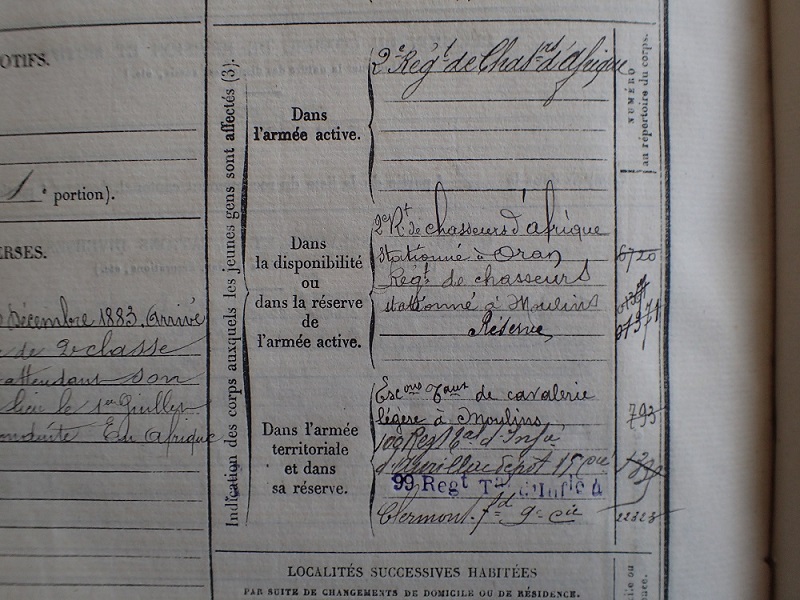 OTIFS.
1
portion).
ERSES.
Décembre 1883. Arrivé
de 2e classe
attendant son
lieu le 1er Juillet
conduite En Afrique
Indication des corps auxquels les jeunes gens sont affectés (3).
Dans
l'armée active.
2e Régt de Chasrs d'Afrique
NUMÉRO
au répertoire du corps.
Dans
la disponibilité
ou
dans la réserve
de
l'armée active.
2e Rt de chasseurs d'afrique
stationné à Oran
6720
Régt de chasseurs
stationné à Moulins
Réserve
Dans l'armée
territoriale
et dans
sa réserve.
Escons de cavalerie
légère à Moulins
793
d'Aurillac dépôt 15 cie
99 Regt
Clermont-fd 9e cie
22323
LOCALITÉS SUCCESSIVES HABITÉES
PAR SUITE DE CHANGEMENTS DE DOMICILE OU DE RÉSIDENCE.